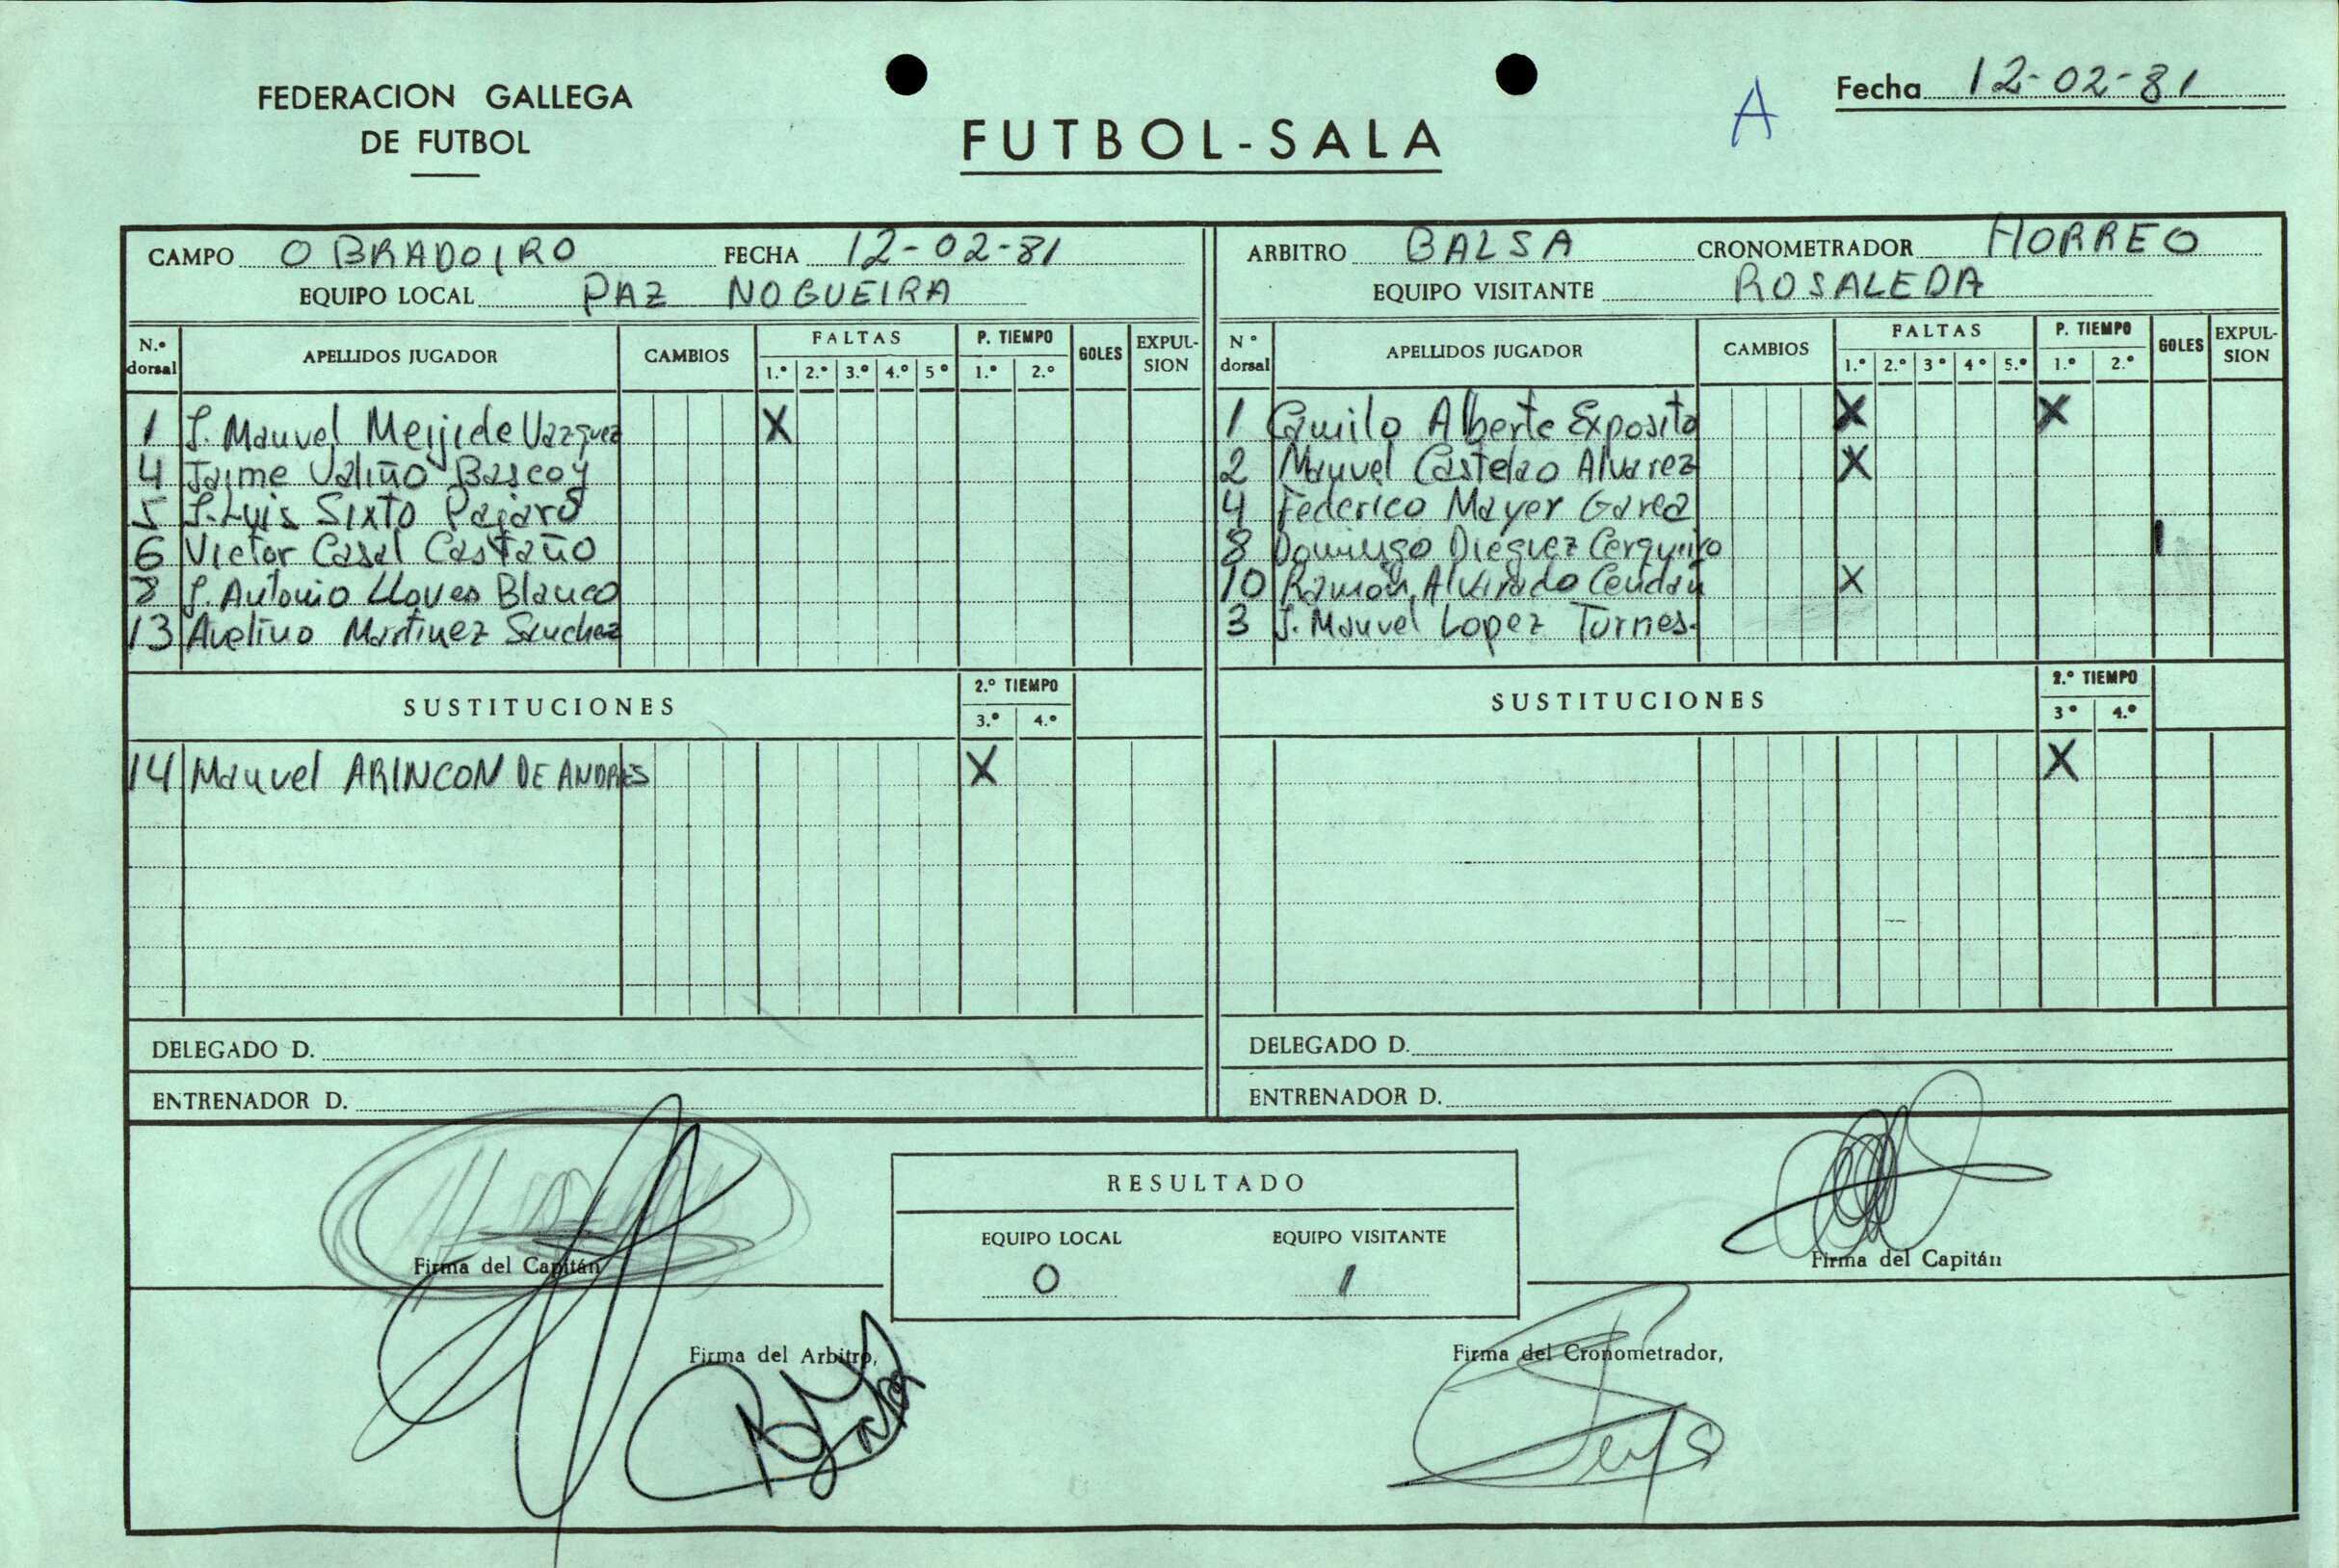 FEDERACION GALLEGA
DE FUTBOL
FUTBOL-SALA
A
Fecha 12-02-81
CAMPO OBRADOIRO FECHA 12-02-81
EQUIPO LOCAL PAZ NOGUEIRA
N.º dorsal APELLIDOS JUGADOR CAMBIOS FALTAS 1.º 2.º 3.º 4.º 5º P. TIEMPO 1.º 2.º GOLES EXPUL-SION
1 J. Manuel Meijide Vazquez X
4 Jaime Valiño Bascoy
5 J. Luis Sixto Pajaro
6 Victor Casal Castaño
8 J. Antonio Lloves Blanco
13 Avelino Martinez Sanchez
SUSTITUCIONES 2.º TIEMPO 3.º 4.º
14 Manuel ARINCON DE ANDRES X
DELEGADO D.
ENTRENADOR D.
ARBITRO BALSA CRONOMETRADOR HORREO
EQUIPO VISITANTE ROSALEDA
Nº dorsal APELLIDOS JUGADOR CAMBIOS FALTAS 1.º 2.º 3º 4º 5.º P. TIEMPO 1.º 2.º GOLES EXPUL-SION
1 Camilo Alberte Exposito X X
2 Manuel Castelao Alvarez X
4 Federico Mayer Garea
8 Domingo Dieguez Cerqueiro 1
10 Ramón Alvirado Cendán X
3 J. Manuel Lopez Turnes.
SUSTITUCIONES 2.º TIEMPO 3º 4.º
X
DELEGADO D.
ENTRENADOR D.
RESULTADO
EQUIPO LOCAL EQUIPO VISITANTE
0 1
Firma del Capitán
Firma del Capitán
Firma del Arbitro,
Firma del Cronometrador,